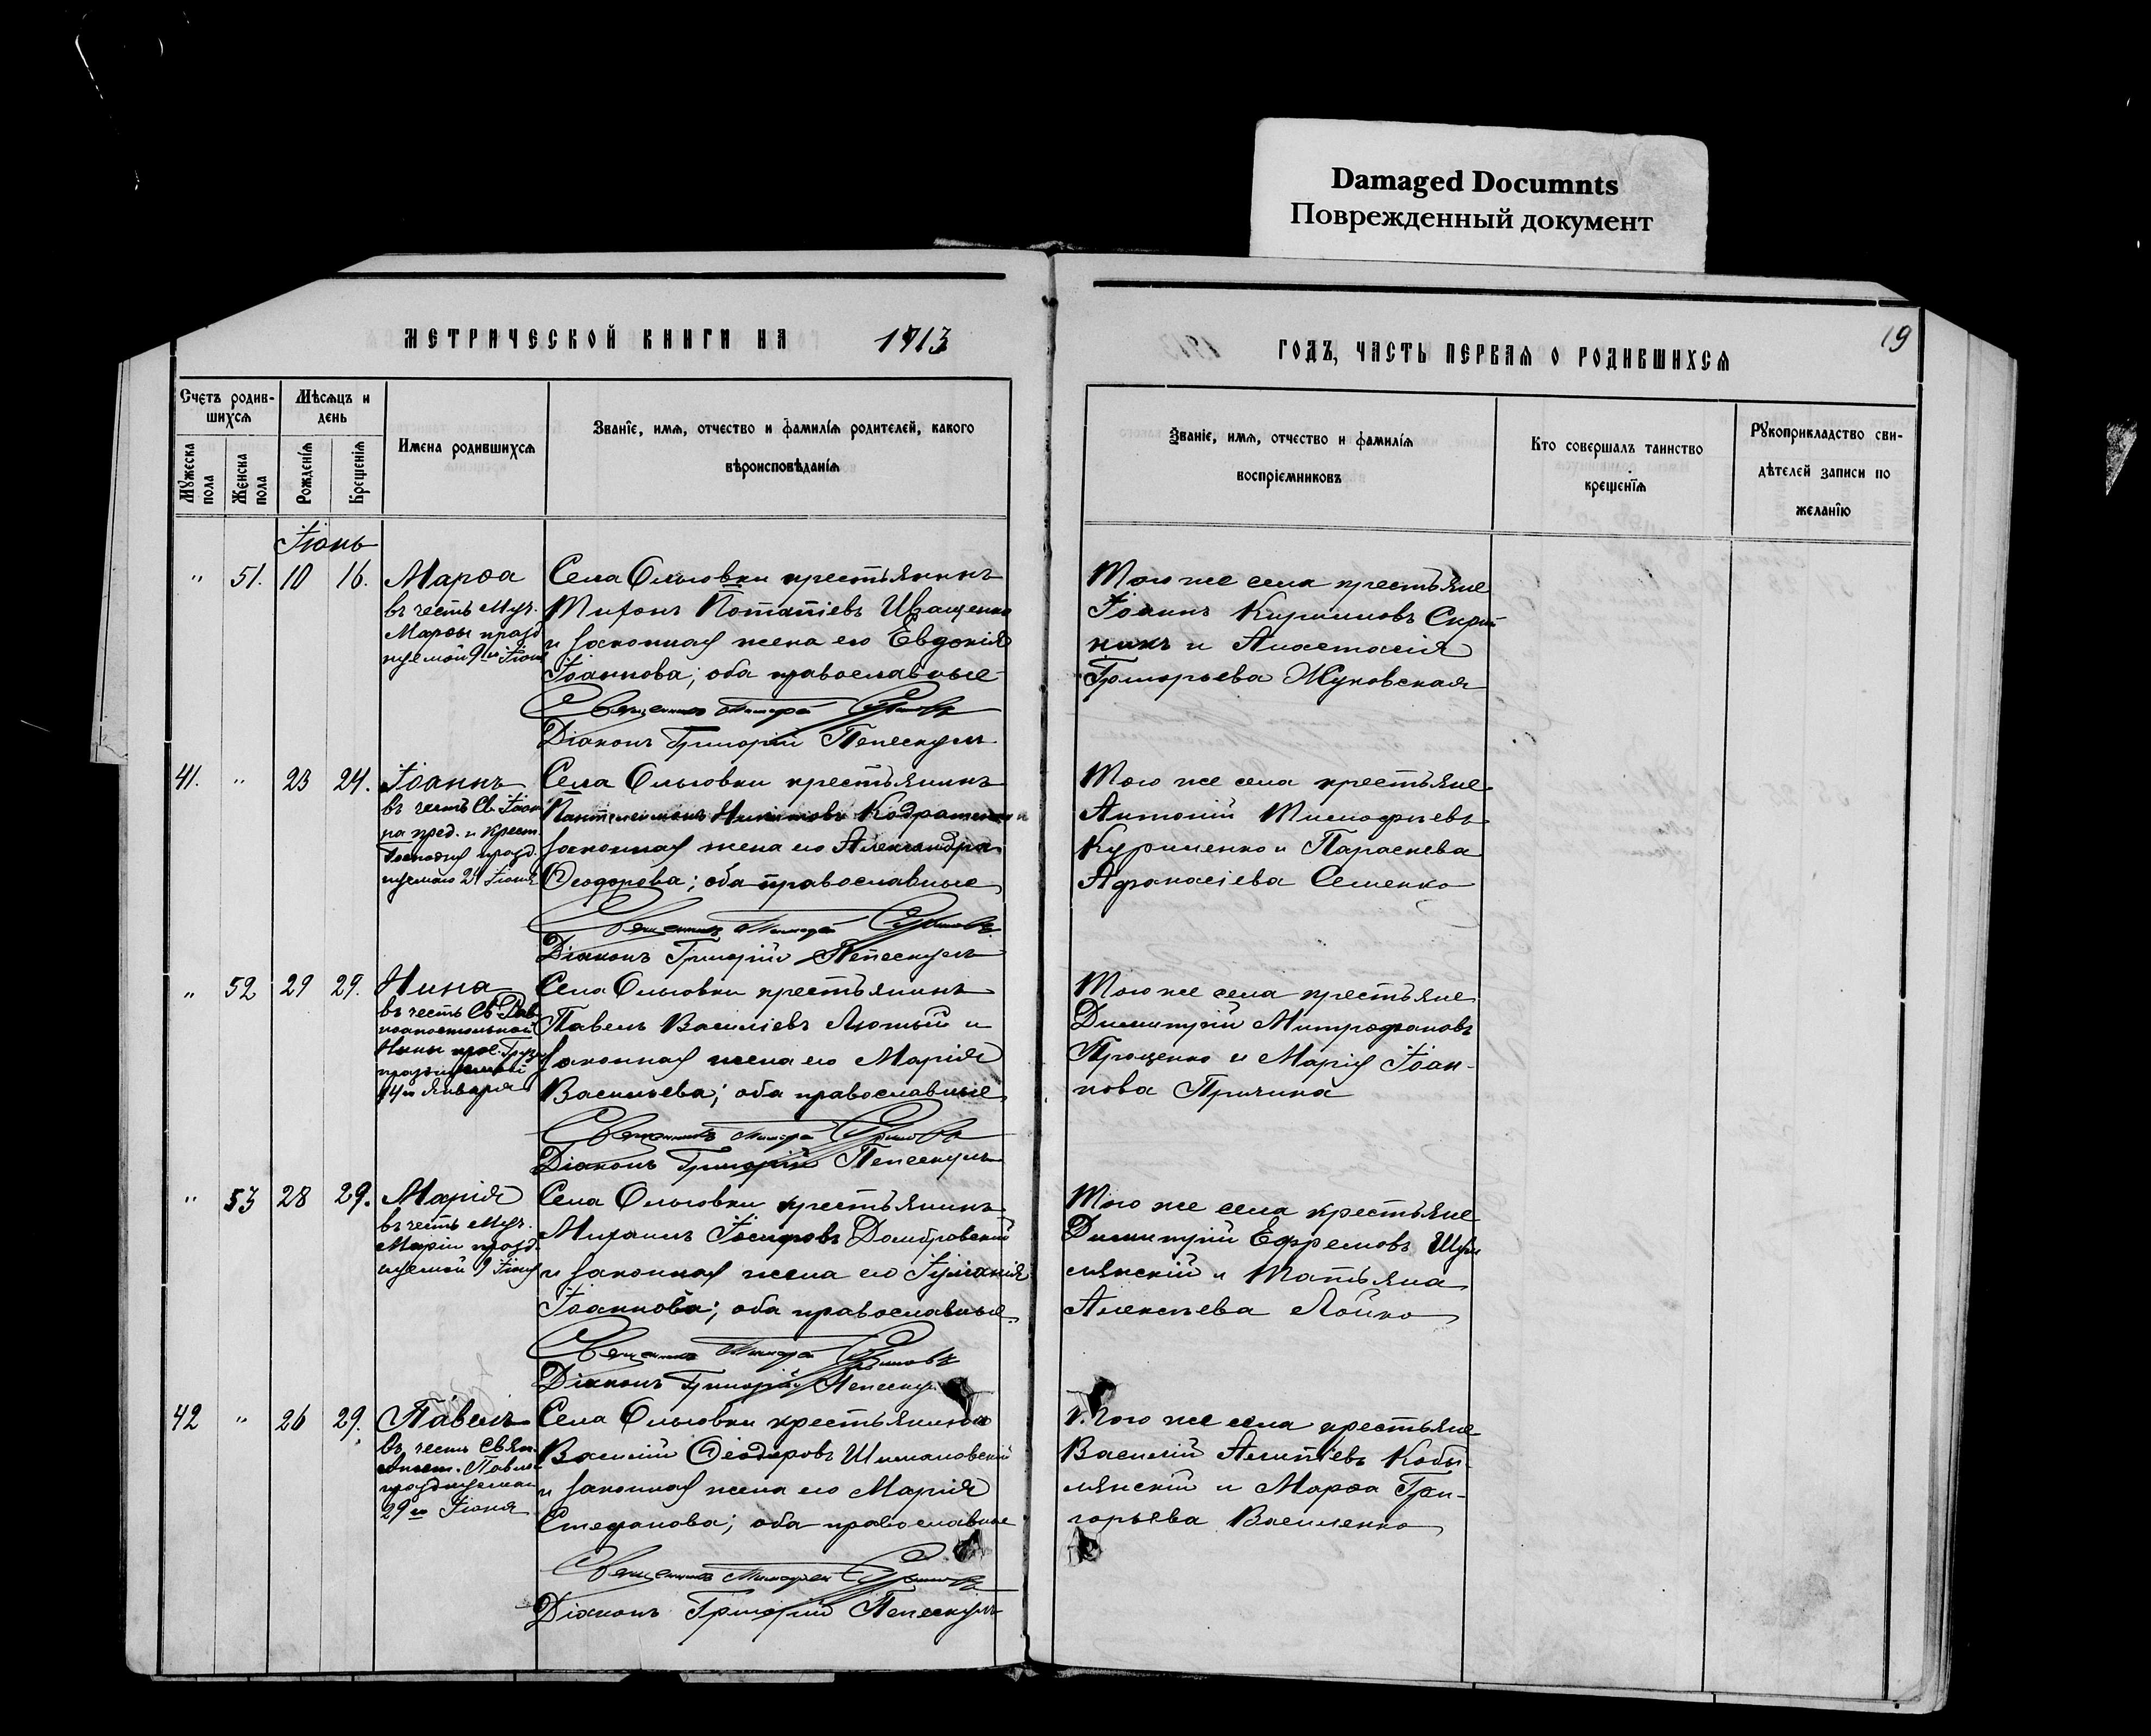 Damaged Documnts
Поврежденный документ
МЕТРИЧЕСКОЙ КНИГИ НА 1913
ГОДЪ, ЧАСТЬ ПЕРВАЯ О РОДИВШИХСЯ
19
Счетъ родив-
шихся
Мѣсяцъ и
день
Мужеска
пола
Женска
пола
Рожденія
Крещенія
Имена родившихся
Званіе, имя, отчество и фамилія родителей, какого
вѣроисповѣданія
Званіе, имя, отчество и фамилія
воспріемниковъ
Кто совершалъ таинство
крещенія
Рукоприкладство сви-
дѣтелей записи по
желанію
Іюнь
" 51. 10 16. Марѳа
въ честь Муч.
Марѳы празд
нуемой 9го Іюня
Села Ольговки крестьянинъ
Тихонъ Потапіевъ Иващенко
и законная жена его Евдокія
Іоаннова; оба православные
Священникъ
Діаконъ Григорій Пепескулъ
Того же села крестьяне
Іоаннъ Кирилловъ Скрип
никъ и Анастасія
Григорьева Жуковская
41. " 23 24. Іоаннъ
въ честь Св. Іоан
на пред. и Крест.
Господня празд.
нуемаго 24 Іюня
Села Ольговки крестьянинъ
Пантелеимонъ
законная жена его Александра
Ѳеодорова; оба православные
Священникъ
Діаконъ Григорій Пепескулъ
Того же села крестьяне
Антоній Тимофѣевъ
Куриленко и Параскева
Афанасіева Семенко
" 52 29 29. Нина
въ честь Св. Рав
ноапостольной
Нины
празднуемой
14го Января
Села Ольговки крестьянинъ
Павелъ Василіевъ Лютый и
законная жена его Марія
Васильева; оба православные
Священникъ
Діаконъ Григорій Пепескулъ
Того же села крестьяне
Димитрій Митрофановъ
Проценко и Марія Іоан-
нова Причина
" 53 28 29. Марія
въ честь Муч.
Маріи празд.
нуемой 9 Іюня
Села Ольговки крестьянинъ
Михаилъ Іосифовъ Домбровскій
и законная жена его Іуліанія
Іоаннова; оба православные.
Священникъ
Діаконъ Григорій
Того же села крестьяне
Димитрій Ефремовъ Шум
лянскій и Татьяна
Алексѣева Лойко
42 " 26 29. Павелъ
въ честь Свят.
Апост. Павла
празднуемаго
29го Іюня
Села Ольговки крестьянинъ
Василій Ѳеодоровъ Шимановскій
и законная жена его Марія
Стефанова; оба православные
Священникъ
Діаконъ Григорій Пепескулъ
Того же села крестьяне
Василій Кобы
лянскій и Марѳа Гри-
горьева Василенко